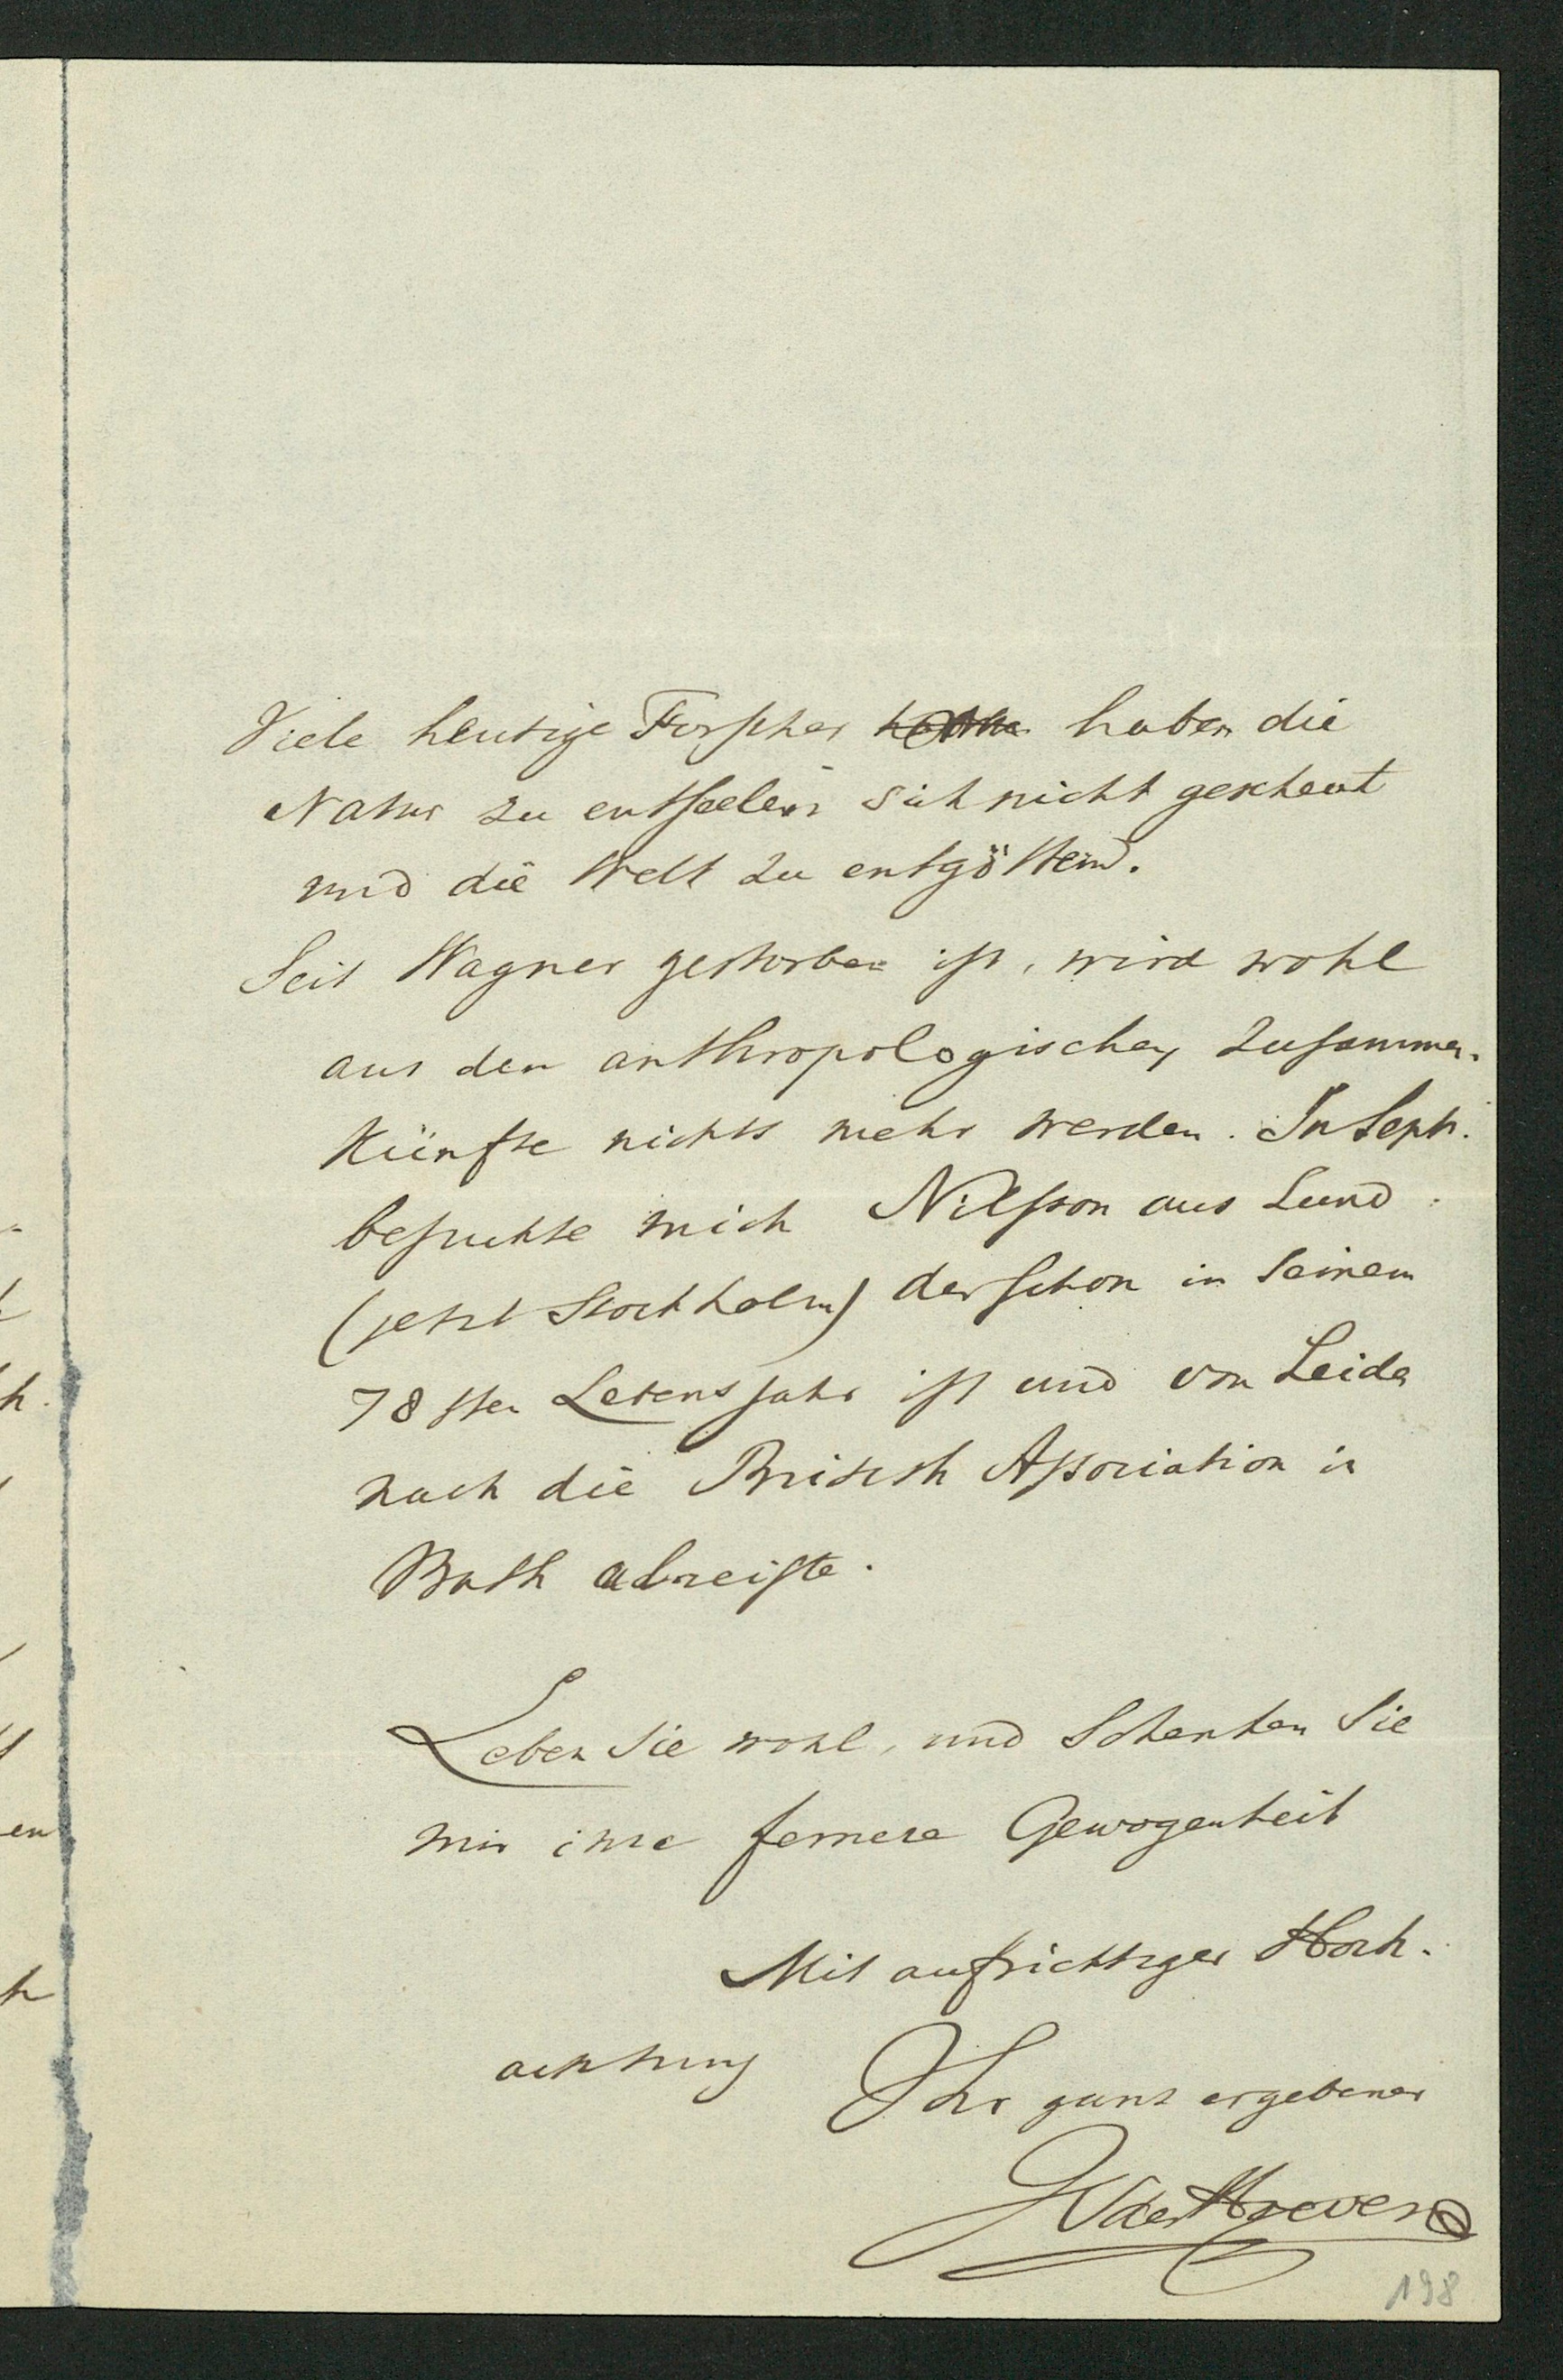 Viele heutige Forscher haben die
Natur zu entseelen sich nicht gescheut
und die Welt zu entgöttern.
Seit Wagner gestorben ist, wird wohl
aus den anthropologischen Zusammen-
künfte nichts mehr werden. In Sept.
besuchte mich Nilsson aus Lund
(jetzt Stockholm) der schon in seinem
78sten Lebensjahr ist und von Leiden
nach die British Association in
Bath abreiste.
Leben Sie wohl, und schenken Sie
mir ihre fernere Gewogenheit
Mit aufrichtiger Hoch-
achtung Ihr ganz ergebener
JVder Hoeven
198